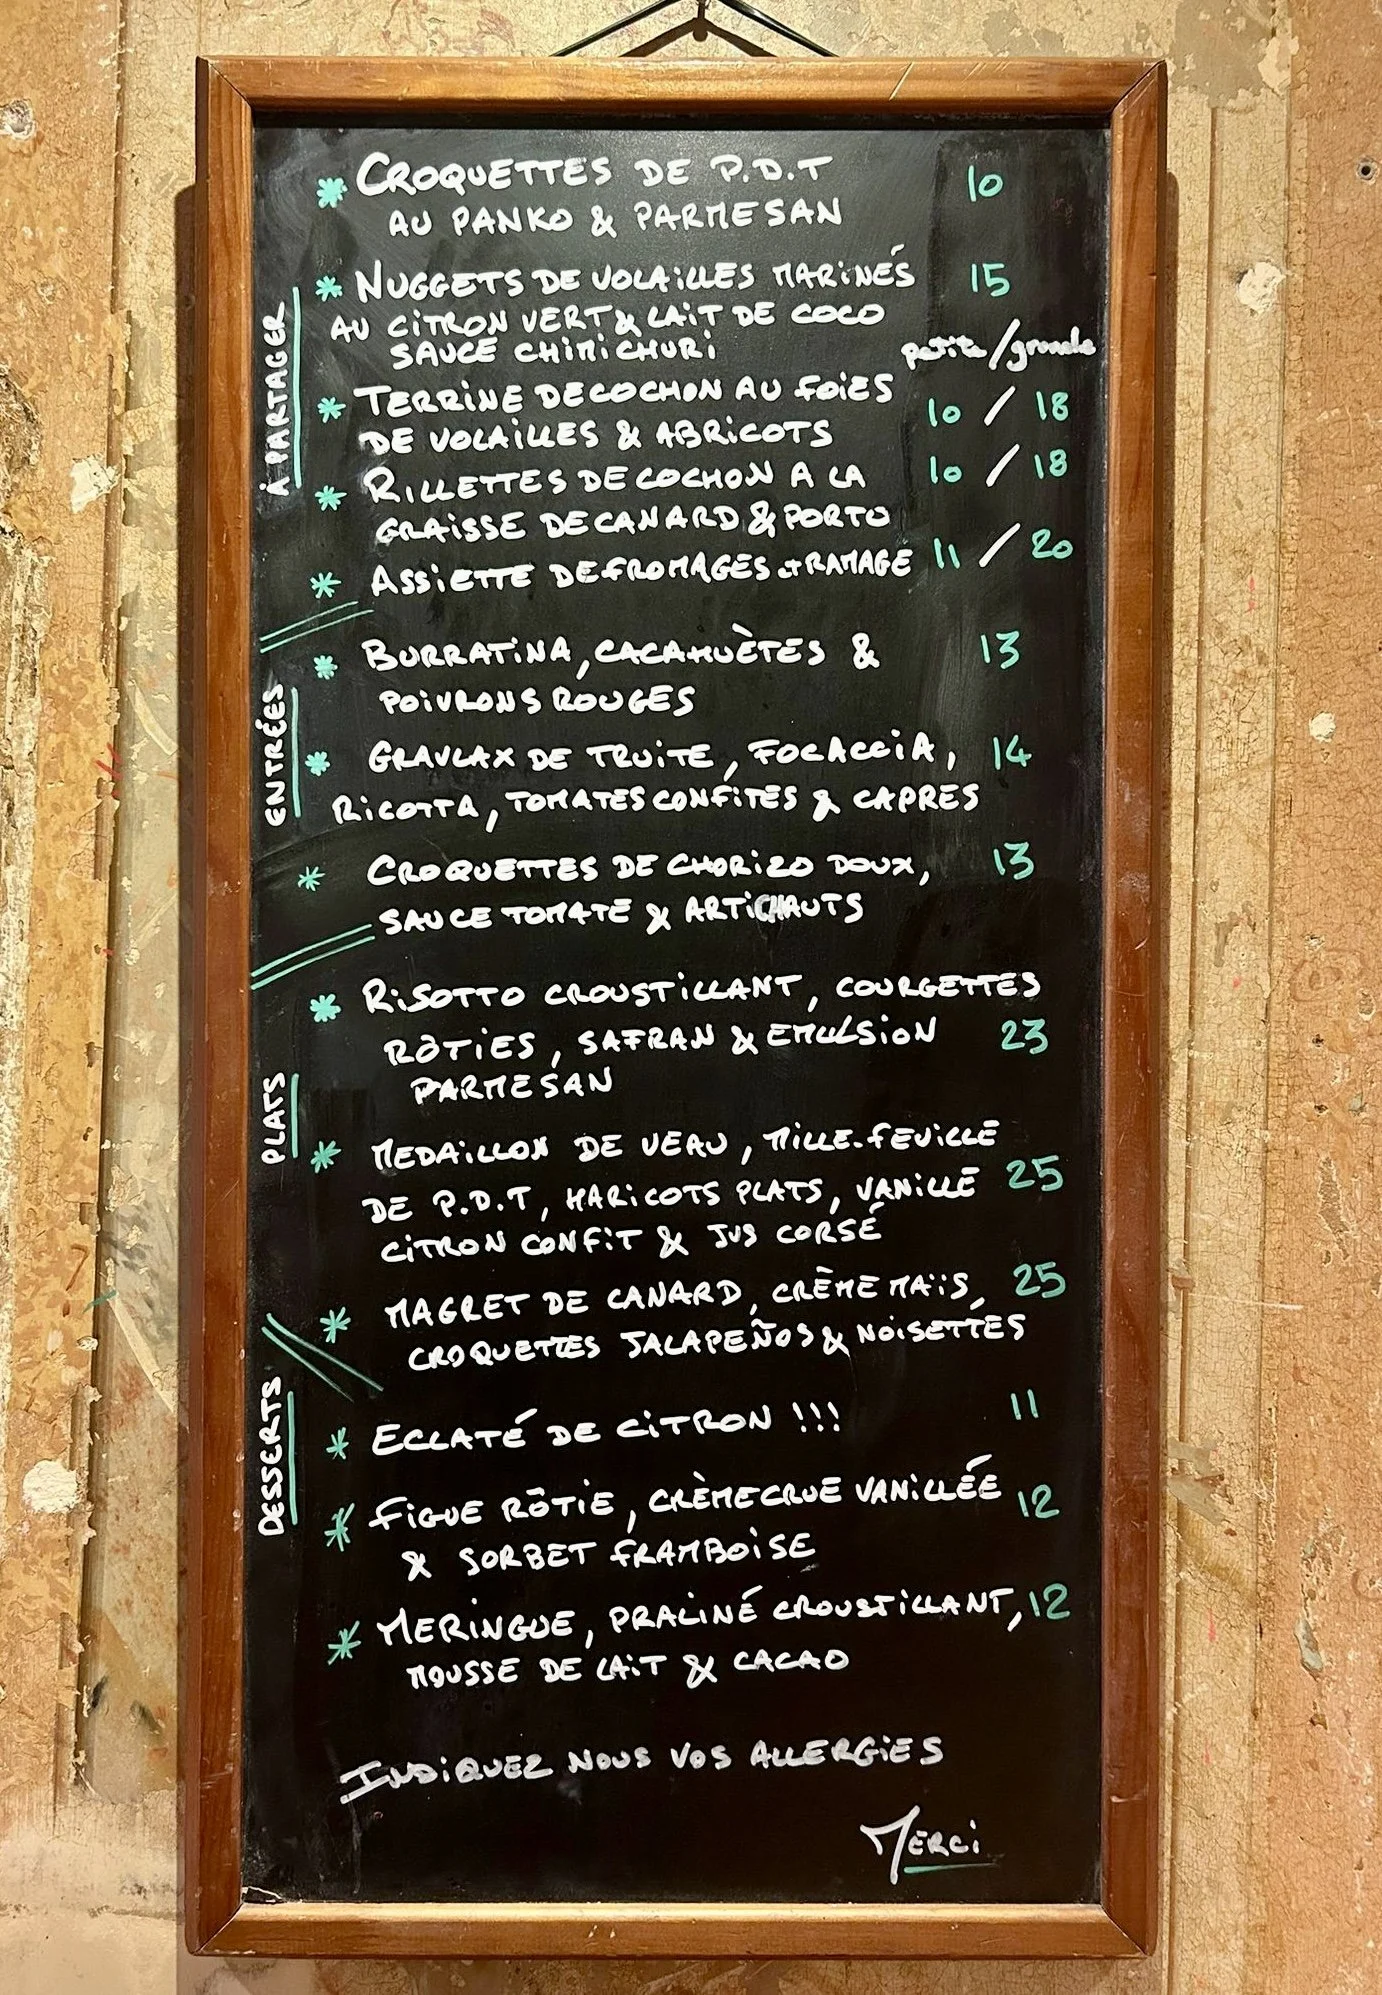 À PARTAGER
* CROQUETTES DE P.D.T 10
AU PANKO & PARMESAN
* NUGGETS DE VOLAILLES MARINÉS 15
AU CITRON VERT & LAIT DE COCO
SAUCE CHIMICHURI
petite / grande
* TERRINE DE COCHON AU FOIES 10 / 18
DE VOLAILLES & ABRICOTS
* RILLETTES DE COCHON A LA 10 / 18
GRAISSE DE CANARD & PORTO
* ASSIETTE DE FROMAGES et RAMAGE 11 / 20
ENTRÉES
* BURRATINA, CACAHUÈTES & 13
POIVRONS ROUGES
* GRAVLAX DE TRUITE, FOCACCIA, 14
RICOTTA, TOMATES CONFITES & CAPRES
* CROQUETTES DE CHORIZO DOUX, 13
SAUCE TOMATE & ARTICHAUTS
PLATS
* RISOTTO CROUSTILLANT, COURGETTES
RÔTIES, SAFRAN & EMULSION 23
PARMESAN
* MEDAILLON DE VEAU, MILLE-FEUILLE
DE P.D.T, HARICOTS PLATS, VANILLE 25
CITRON CONFIT & JUS CORSÉ
* MAGRET DE CANARD, CRÈME MAÏS, 25
CROQUETTES JALAPEÑOS & NOISETTES
DESSERTS
* ECLATÉ DE CITRON !!! 11
* FIGUE RÔTIE, CRÈME CRUE VANILLÉE 12
& SORBET FRAMBOISE
* MERINGUE, PRALINÉ CROUSTILLANT, 12
MOUSSE DE LAIT & CACAO
INDIQUEZ NOUS VOS ALLERGIES
MERCI